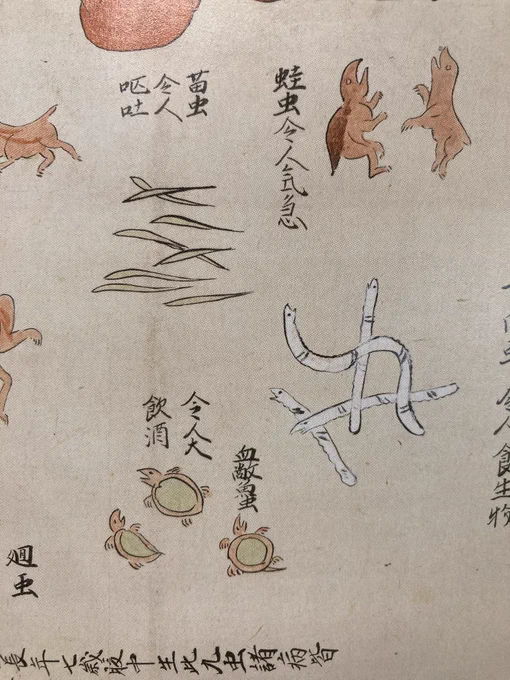 令人
生物
蛙虫令人気急
苗虫
令人
呕吐
血鼈
令人大
飲酒
廻虫
皆病諸虫九此生中腹